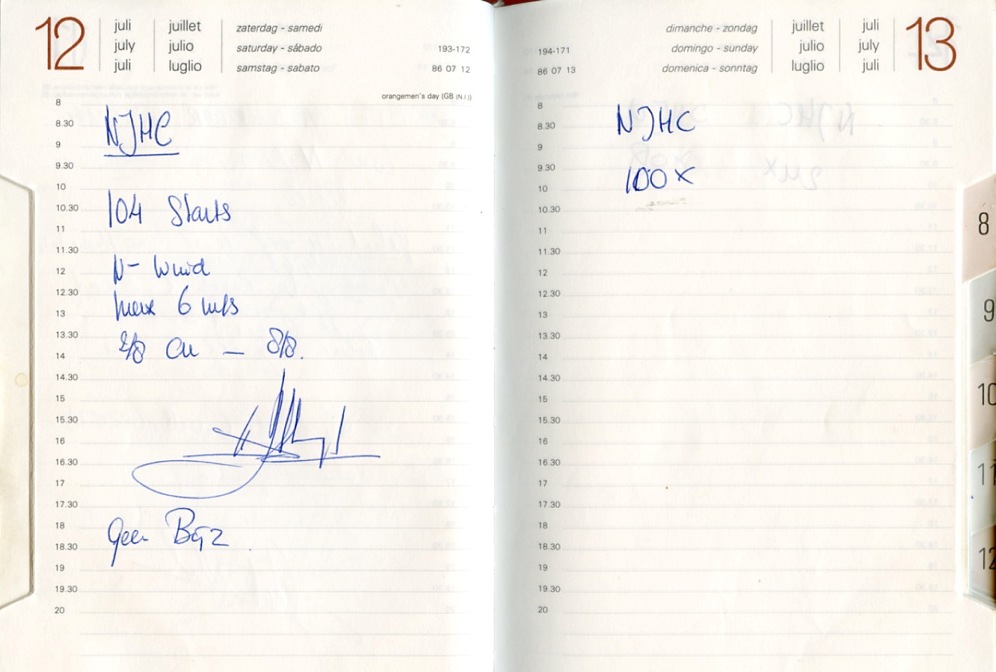 12
juli juillet zaterdag - samedi
july julio saturday - sábado 193-172
juli luglio samstag - sabato 86 07 12
orangemen's day (GB (N.I.))
8
8.30 NJHC
9
9.30
10
10.30 104 Starts
11
11.30
12 N- Wind
12.30
13 max 6 m/s
13.30
14 2/8 Cu — 8/8.
14.30
15
15.30
16
16.30
17
17.30
18 geen Bijz.
18.30
19
19.30
20
dimanche - zondag juillet juli 13
194-171 domingo - sunday julio july
86 07 13 domenica - sonntag luglio juli
8
8.30 NJHC
9
9.30
10 100 x
10.30
11
11.30
12
12.30
13
13.30
14
14.30
15
15.30
16
16.30
17
17.30
18
18.30
19
19.30
20
8
9
10
11
12